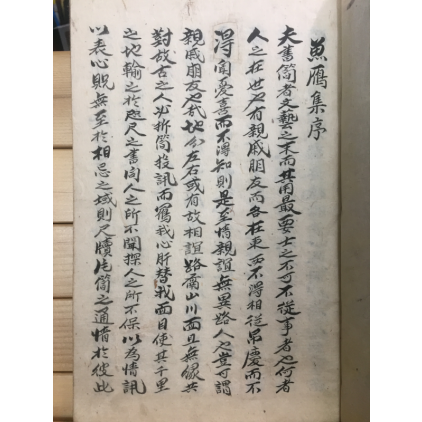 魚鴈集序
夫書簡者文藝之末而其用最要士之不可不從事者也何者
人之在世也有親戚朋友而各在東西不得相從吊慶而不
得聞愛喜而不得知則是至情親誼無異路人也豈可謂
親戚朋友也哉 左右或有故相誼路隔山川而且無緣共
對故古之人必折簡投訊而寫我心肝替我面目使其千里
之地輸之於咫尺之書間人之所不聞探人之所不保以為情訊
以表心貺無至於相忌之域則尺牘片簡之通情於彼此